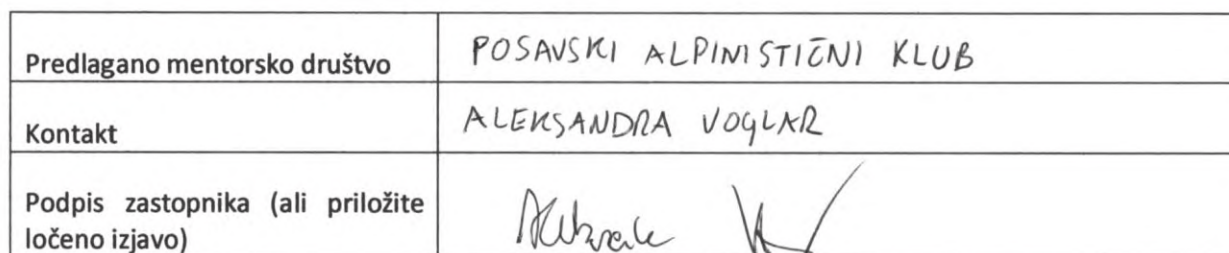 Predlagano mentorsko društvo
POSAVSKI ALPINISTIČNI KLUB
Kontakt
ALEKSANDRA VOGLAR
Podpis zastopnika (ali priložite
ločeno izjavo)